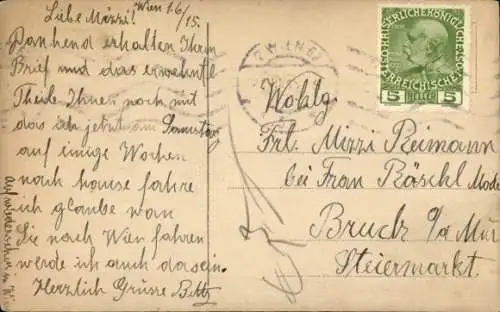 Wien 1.6/15.
Liebe Mizzi!
Dankend erhalten Ihren
Brief und das erwähnte
Theile Ihnen noch mit
das ich jetzt am Samstag
auf einige Wochen
nach hause fahre
ich glaube wan
Sie nach Wien fahren
werde ich auch da sein.
Herzlich Grüsse Betty
auf wiedersehen in Wien
KAISERLICHE KÖNIGLICHE
ÖSTERREICHISCHE
5 HELLER 5
WIEN
Wohlg.
Frl. Mizzi Reimann
bei Frau Böschl Mode
Bruck a/d Mur
Steiermarkt.